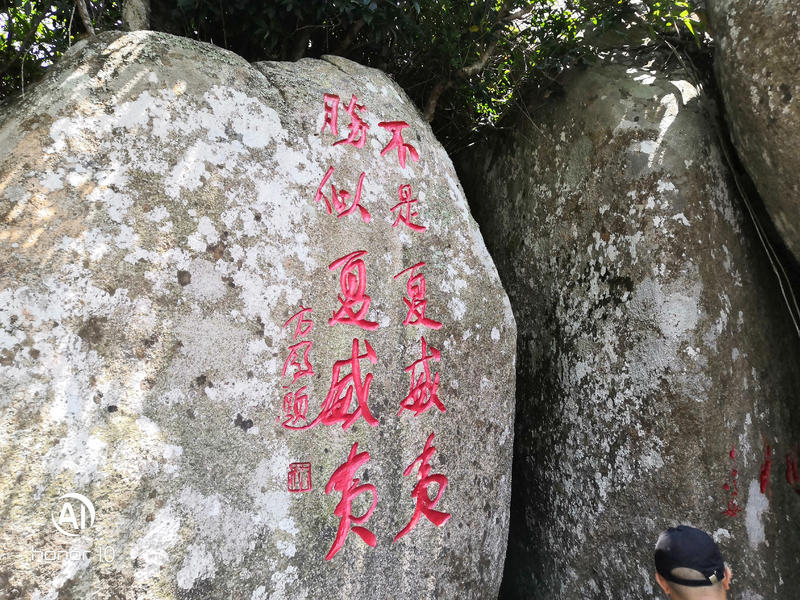 不是夏威夷
胜似夏威夷
方原题
AI
honor 10